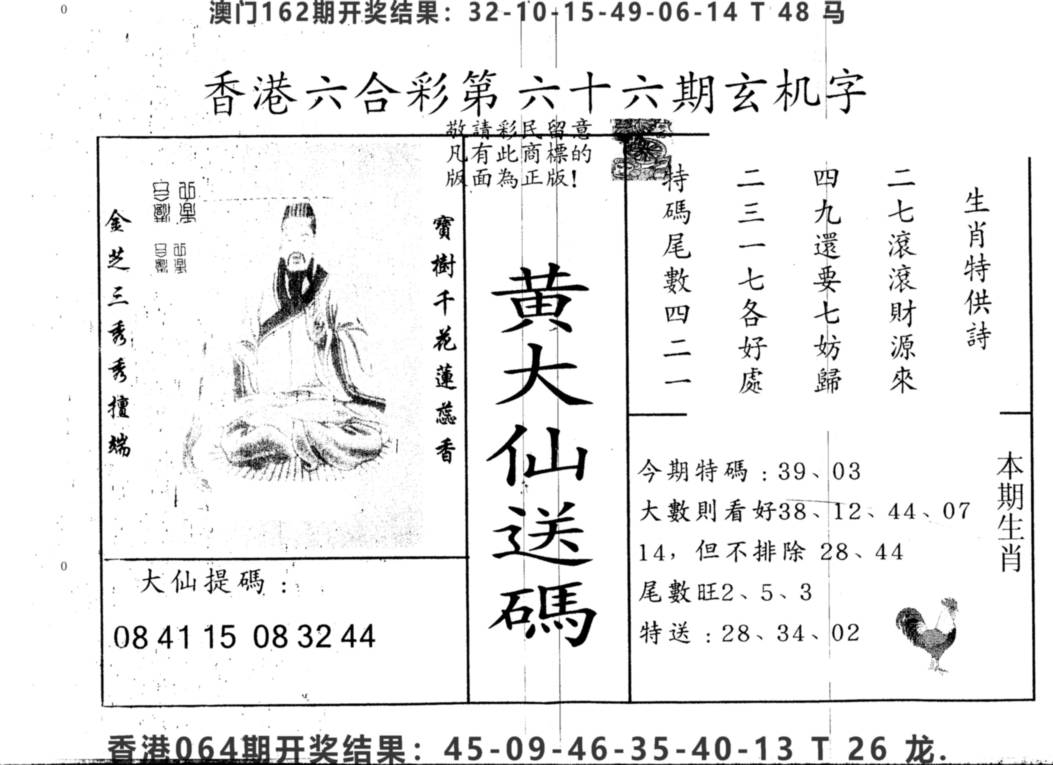 澳门162期开奖结果：32-10-15-49-06-14 T 48 马
香港六合彩第 六十六期玄机字
敬請彩民留意
凡有此商標的
版面為正版!
生肖特供詩
二七滾滾財源來
四九還要七妨歸
二三一七各好處
特碼尾數四二一
寶樹千花蓮蕊香
金芝三秀秀擅端
黄大仙送碼
大仙提碼：
08 41 15 08 32 44
本期生肖
今期特碼：39、03
大數則看好38、12、44、07
14，但不排除 28、44
尾數旺2、5、3
特送：28、34、02
香港064期开奖结果：45-09-46-35-40-13 T 26 龙.